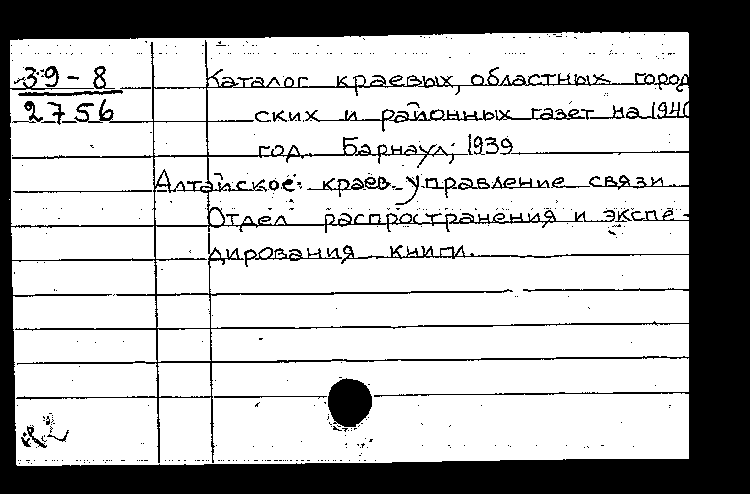 39-8
2756
Каталог краевых, областных город
ских и районных газет на 1940
год. Барнаул, 1939
Алтайское краев. управление связи
Отдел распространения и экспе-
дирования книги.